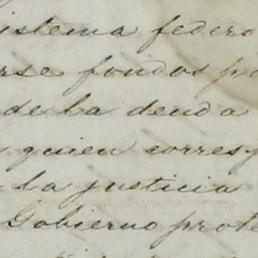 istema federa
rse fondos pa
de la deuda
quien corresp
la justicia
Gobierno prote